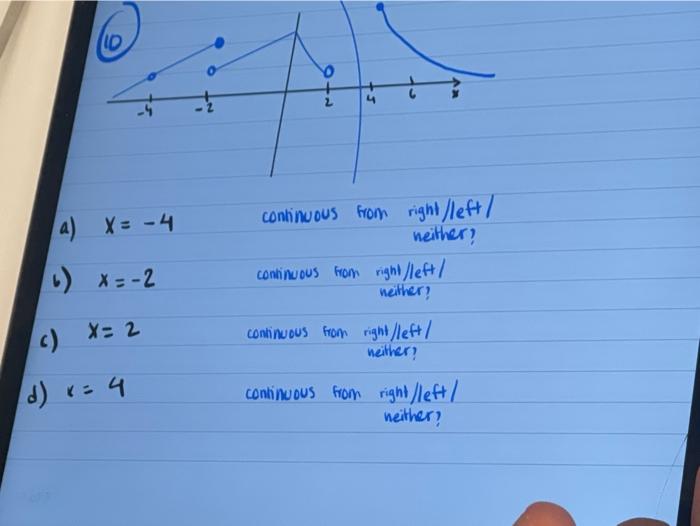 10
-4 -2 2 4 6 x
a) x = -4 continuous from right/left/
neither?
b) x = -2 continuous from right/left/
neither?
c) x = 2 continuous from right/left/
neither?
d) x = 4 continuous from right/left/
neither?